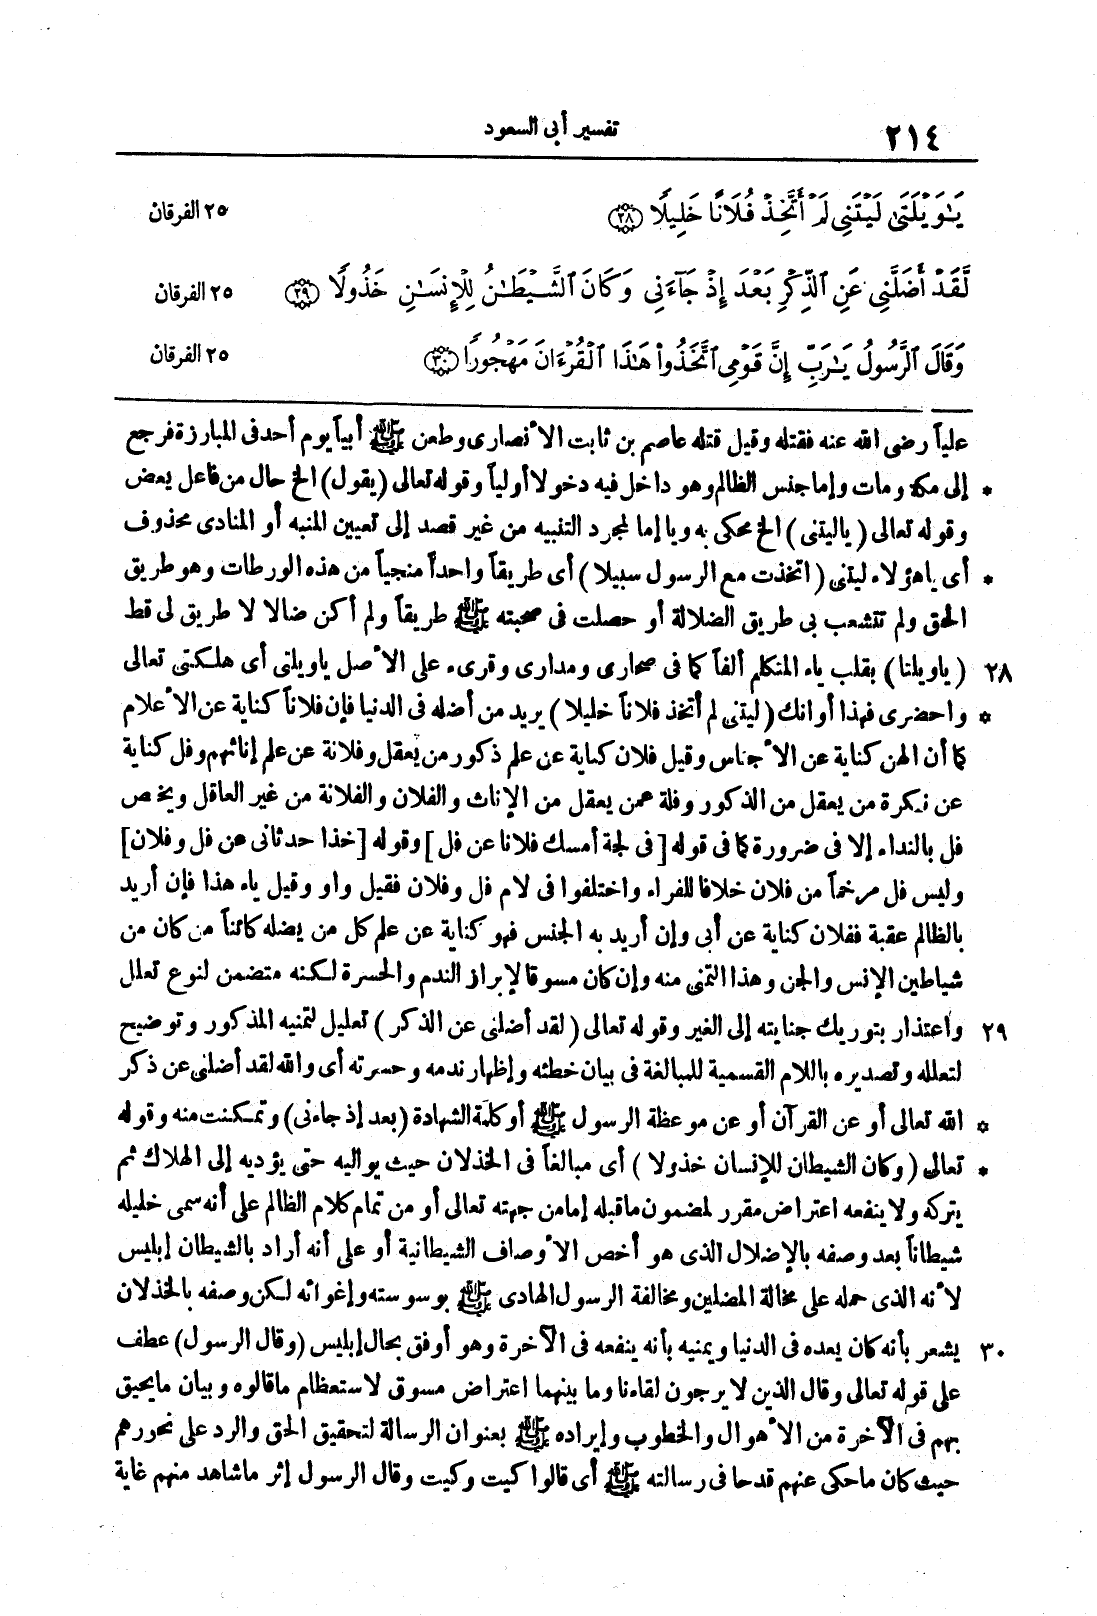 ٢١٤ تفسير أبى السعود
يَٰوَيْلَتَىٰ لَيْتَنِى لَمْ أَتَّخِذْ فُلَانًا خَلِيلًا ﴿٢٨﴾ ٢٥ الفرقان
لَّقَدْ أَضَلَّنِى عَنِ ٱلذِّكْرِ بَعْدَ إِذْ جَآءَنِى وَكَانَ ٱلشَّيْطَٰنُ لِلْإِنسَٰنِ خَذُولًا ﴿٢٩﴾ ٢٥ الفرقان
وَقَالَ ٱلرَّسُولُ يَٰرَبِّ إِنَّ قَوْمِى ٱتَّخَذُوا۟ هَٰذَا ٱلْقُرْءَانَ مَهْجُورًا ﴿٣٠﴾ ٢٥ الفرقان
علياً رضى الله عنه فقتله وقيل قتله عاصم بن ثابت الأنصارى وطعن ﷺ أبياً يوم أحد فى المبارزة فرجع
* إلى مكة ومات وإما جنس الظالم وهو داخل فيه دخولا أولياً وقوله تعالى (يقول) الخ حال من فاعل يعض
وقوله تعالى (ياليتنى) الخ محكى به ويا إما لمجرد التنبيه من غير قصد إلى تعيين المنبه أو المنادى محذوف
* أى ياهؤلاء ليتنى (اتخذت مع الرسول سبيلا) أى طريقاً واحداً منجياً من هذه الورطات وهو طريق
الحق ولم تتشعب بى طريق الضلالة أو حصلت فى صحبته ﷺ طريقاً ولم أكن ضالا لا طريق لى قط
٢٨ (ياويلتا) بقلب ياء المتكلم ألفاً كما فى صحارى ومدارى وقرىء على الأصل ياويلتى أى هلكتى تعالى
* واحضرى فهذا أوانك (ليتنى لم أتخذ فلاناً خليلا) يريد من أضله فى الدنيا فإن فلاناً كناية عن الأعلام
كما أن الهن كناية عن الأجناس وقيل فلان كناية عن علم ذكور من يعقل وفلانة عن علم إناثهم وفل كناية
عن نكرة من يعقل من الذكور وفلة عمن يعقل من الإناث والفلان والفلانة من غير العاقل ويخص
فل بالنداء إلا فى ضرورة كما فى قوله [فى لجة أمسك فلانا عن فل] وقوله [خذا حدثانى عن فل وفلان]
وليس فل مرخماً من فلان خلافا للفراء واختلفوا فى لام فل وفلان فقيل واو وقيل ياء هذا فإن أريد
بالظالم عقبة ففلان كناية عن أبى وإن أريد به الجنس فهو كناية عن علم كل من يضله كائناً من كان من
شياطين الإنس والجن وهذا التمنى منه وإن كان مسوقا لإبراز الندم والحسرة لكنه متضمن لنوع تعلل
٢٩ واعتذار بتوريك جنايته إلى الغير وقوله تعالى (لقد أضلنى عن الذكر) تعليل لتمنيه المذكور وتوضيح
لتعلله وتصديره باللام القسمية للمبالغة فى بيان خطئه وإظهار ندمه وحسرته أى والله لقد أضلنى عن ذكر
* الله تعالى أو عن القرآن أو عن موعظة الرسول ﷺ أو كلمة الشهادة (بعد إذ جاءنى) وتمكنت منه وقوله
* تعالى (وكان الشيطان للإنسان خذولا) أى مبالغاً فى الخذلان حيث يواليه حتى يؤديه إلى الهلاك ثم
يتركه ولا ينفعه اعتراض مقرر لمضمون ماقبله إما من جهته تعالى أو من تمام كلام الظالم على أنه سمى خليله
شيطاناً بعد وصفه بالإضلال الذى هو أخص الأوصاف الشيطانية أو على أنه أراد بالشيطان إبليس
لأنه الذى حمله على مخالة المضلين ومخالفة الرسول الهادى ﷺ بوسوسته وإغوائه لكن وصفه بالخذلان
٣٠ يشعر بأنه كان يعده فى الدنيا ويمنيه بأنه ينفعه فى الآخرة وهو أوفق بحال إبليس (وقال الرسول) عطف
على قوله تعالى وقال الذين لا يرجون لقاءنا وما بينهما اعتراض مسوق لاستعظام ماقالوه وبيان مايحيق
بهم فى الآخرة من الأهوال والخطوب وإيراده ﷺ بعنوان الرسالة لتحقيق الحق والرد على نحورهم
حيث كان ماحكى عنهم قدحا فى رسالته ﷺ أى قالوا كيت وكيت وقال الرسول إثر ماشاهد منهم غاية